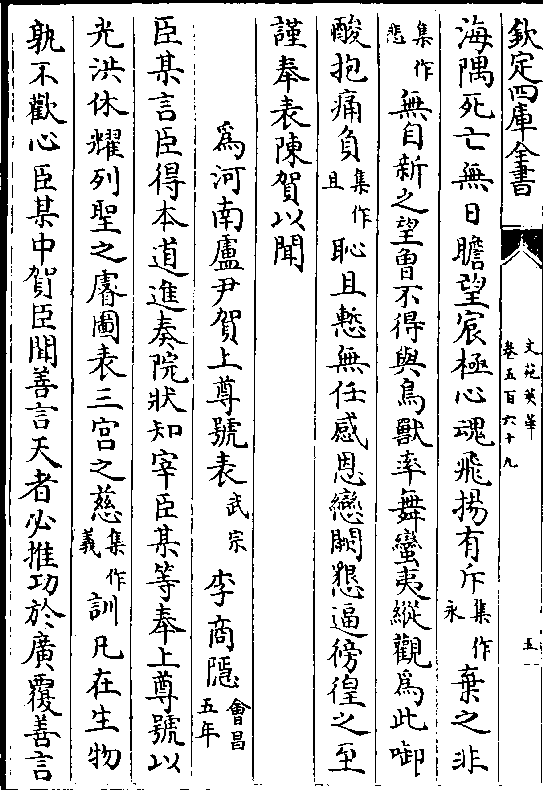 欽定四庫全書
文苑英華
卷五百六十九
五
海隅死亡無日瞻望宸極心魂飛揚有斥集作永棄之非
集作悲無自新之望曾不得與鳥獸率舞蠻夷縱觀為此啣
酸抱痛負集作且恥且慙無任感恩戀闕懇逼徬徨之至
謹奉表陳賀以聞
為河南盧尹賀上尊號表武宗 李商隱會昌五年
臣某言臣得本道進奏院狀知宰臣某等奉上尊號以
光洪休耀列聖之睿圖表三宮之慈集作義訓凡在生物
孰不歡心臣某中賀臣聞善言天者必推功於廣覆善言